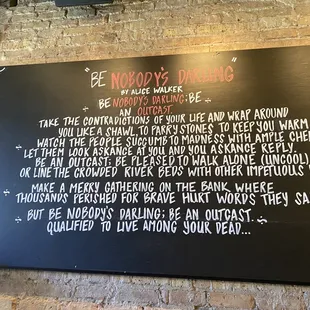 "BE NOBODY'S DARLING"
BY ALICE WALKER
BE NOBODY'S DARLING; BE
AN OUTCAST.
TAKE THE CONTRADICTIONS OF YOUR LIFE AND WRAP AROUND
YOU LIKE A SHAWL, TO PARRY STONES TO KEEP YOU WARM
WATCH THE PEOPLE SUCCUMB TO MADNESS WITH AMPLE CHE
LET THEM LOOK ASKANCE AT YOU AND YOU ASKANCE REPLY.
BE AN OUTCAST; BE PLEASED TO WALK ALONE (UNCOOL)
OR LINE THE CROWDED RIVER BEDS WITH OTHER IMPETUOUS
MAKE A MERRY GATHERING ON THE BANK WHERE
THOUSANDS PERISHED FOR BRAVE HURT WORDS THEY SA
BUT BE NOBODY'S DARLING; BE AN OUTCAST.
QUALIFIED TO LIVE AMONG YOUR DEAD...